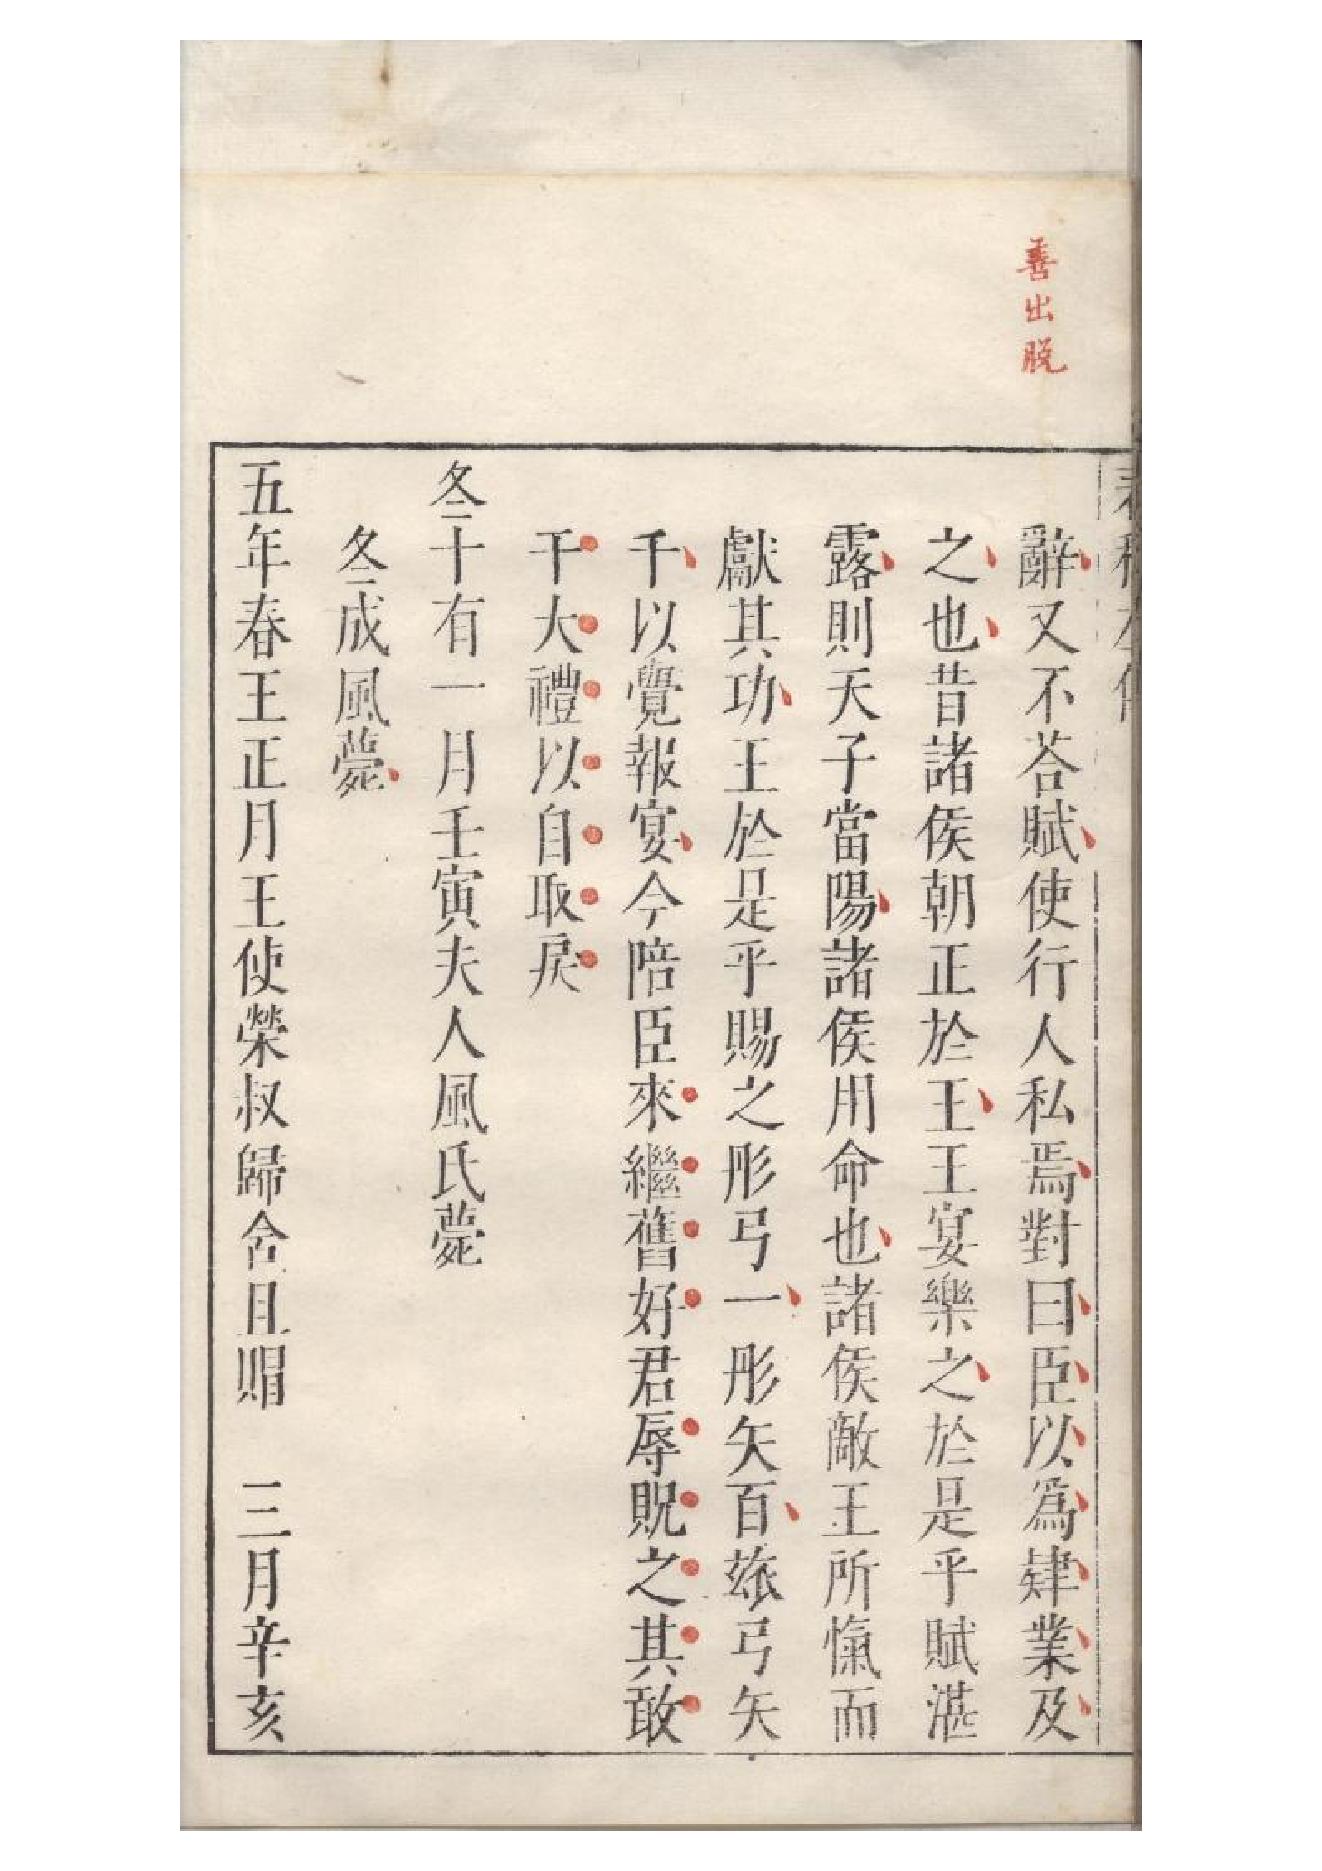 善出脫
辭又不荅賦使行人私焉對曰臣以爲肄業及
之也昔諸侯朝正於王王宴樂之於是乎賦湛
露則天子當陽諸侯用命也諸侯敵王所愾而
獻其功王於是乎賜之彤弓一彤矢百玈弓矢
千以覺報宴今陪臣來繼舊好君辱貺之其敢
干大禮以自取戾
冬十有一月壬寅夫人風氏薨
冬成風薨
五年春王正月王使榮叔歸含且賵　三月辛亥